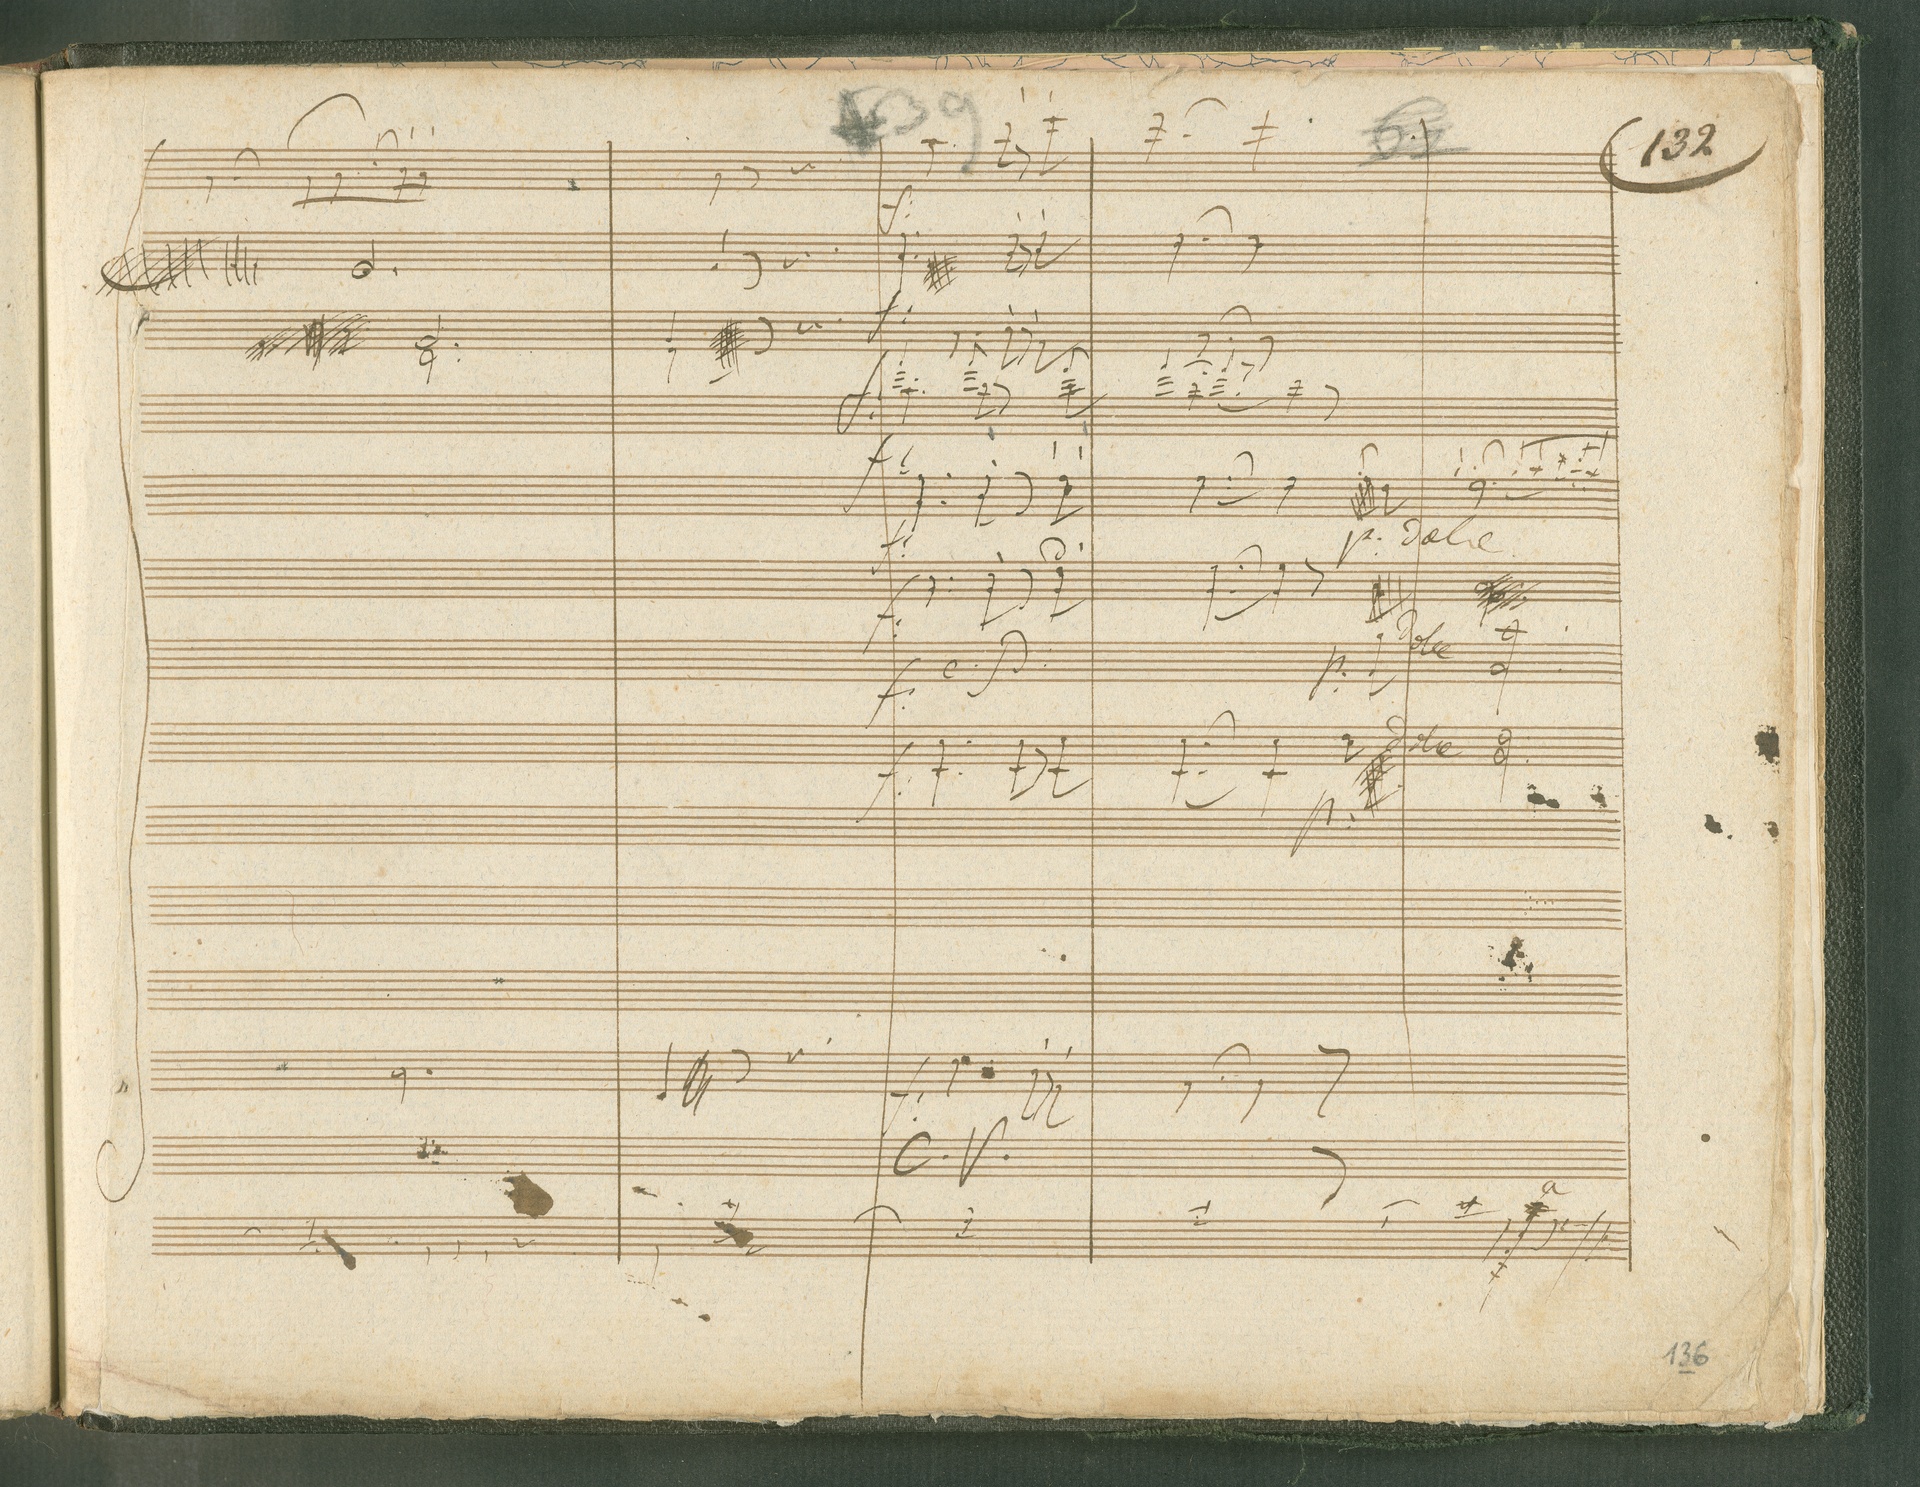 39
132
f:
f:
f.
f:
f:
p: dolce
f:
f. c. p. dolce
f. dolce
p:
f:
C. V.
a
136